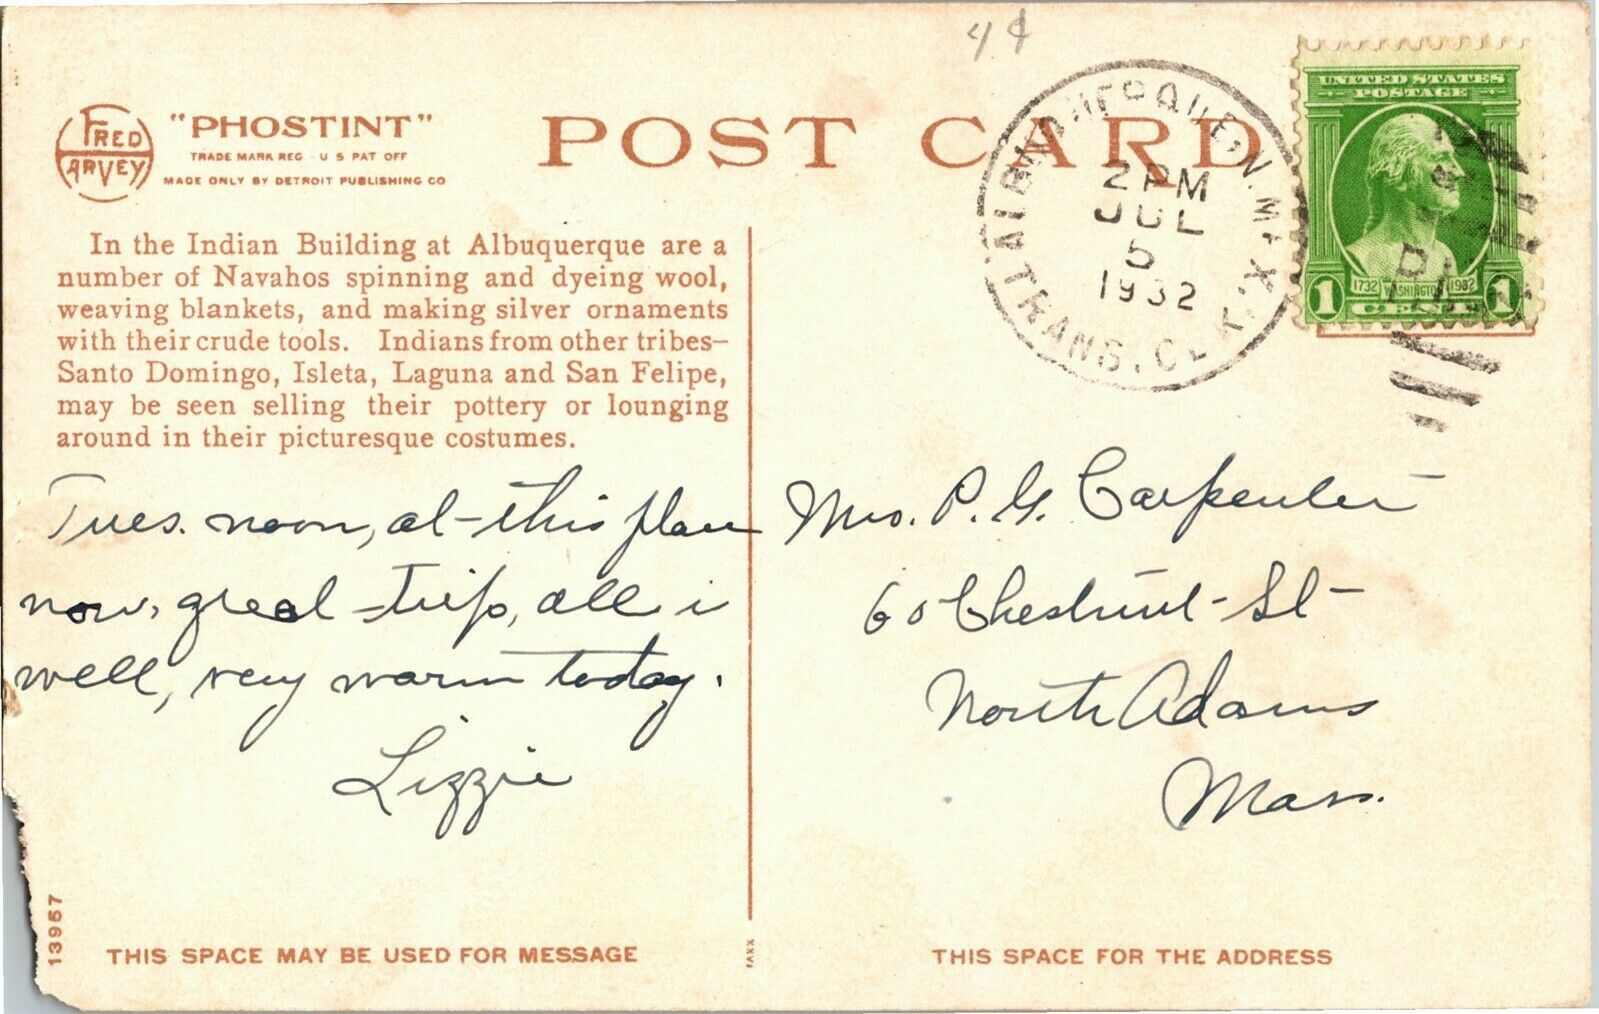 4¢
FRED HARVEY
"PHOSTINT"
TRADE MARK REG · U S PAT OFF
MADE ONLY BY DETROIT PUBLISHING CO
POST CARD
ALBUQUERQUE, N. MEX.
2 PM
JUL
5
1932
TRANS. CLK.
UNITED STATES
POSTAGE
1732 WASHINGTON 1932
1 CENT 1
In the Indian Building at Albuquerque are a
number of Navahos spinning and dyeing wool,
weaving blankets, and making silver ornaments
with their crude tools. Indians from other tribes—
Santo Domingo, Isleta, Laguna and San Felipe,
may be seen selling their pottery or lounging
around in their picturesque costumes.
Tues. noon, at this place
now, great trip, all is
well, very warm today.
Lizzie
Mrs. P. G. Carpenter
60 Chestnut St
North Adams
Mass.
13957
THIS SPACE MAY BE USED FOR MESSAGE
THIS SPACE FOR THE ADDRESS